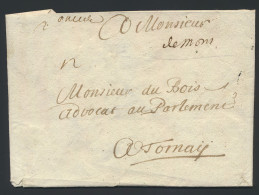 A Monsieur
de mons
Monsieur du Bois
advocat au Parlement
A Tornay